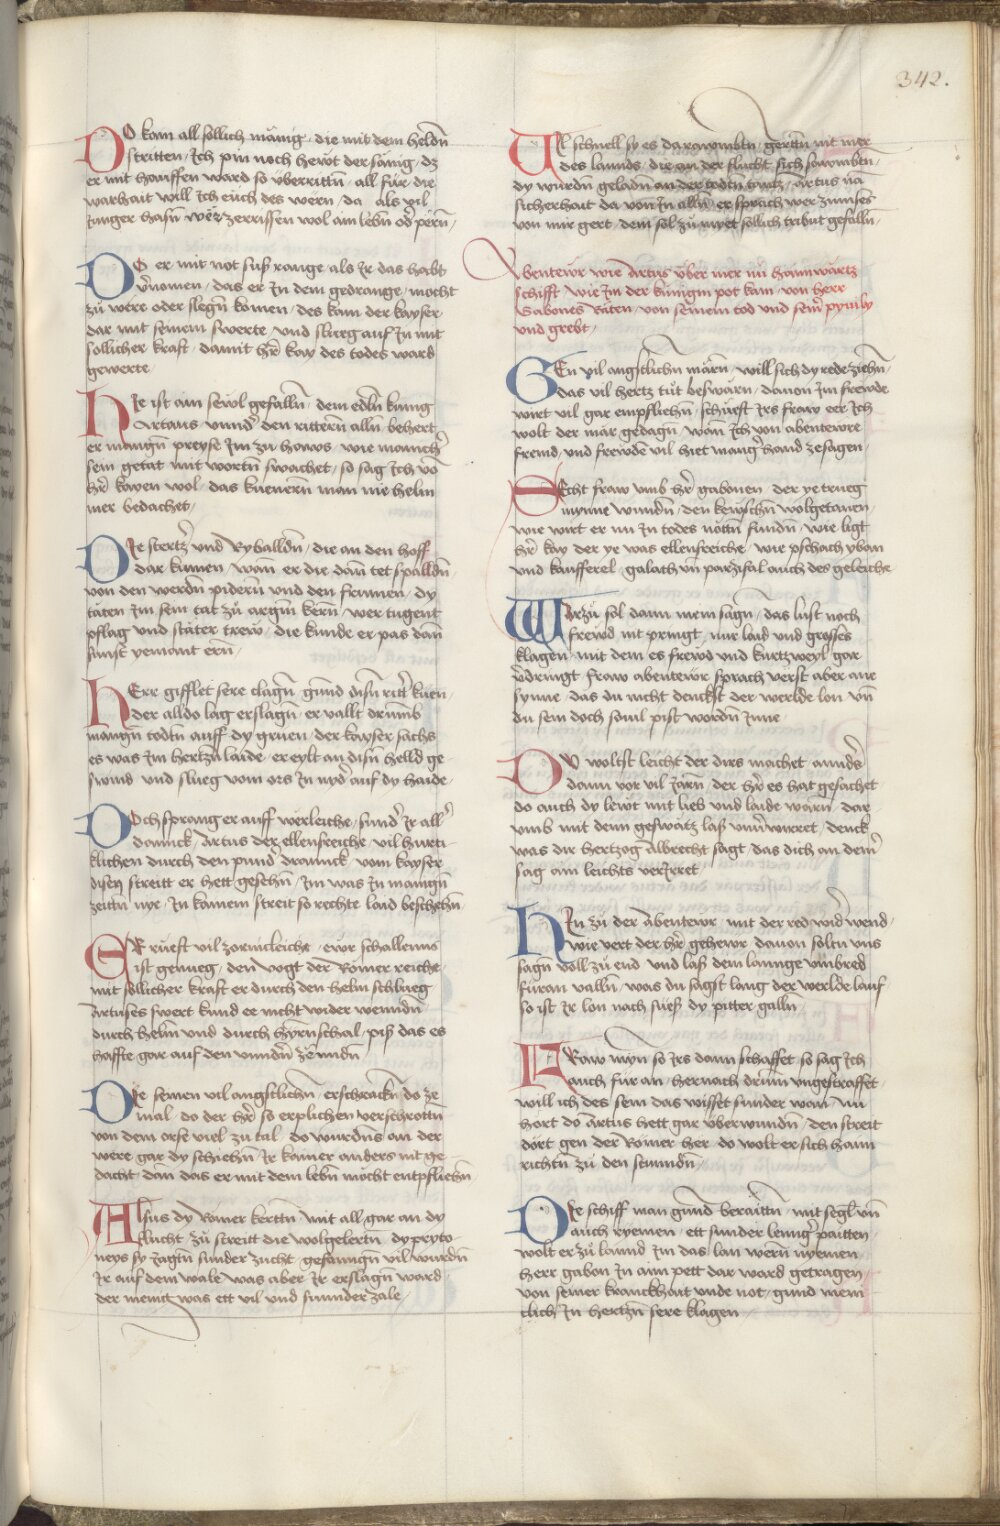 342.
DO kam all sollich mänig · die mit dem heldn̄
stritten / Ich pin noch hewt der sänig · dz
er mit hauffen ward so vberrittn̄ · all für die
warhait will Ich euch des wern / da als vil
Junger hasn̄ wër zerrissen wol am lebn̄ od̄ pern̄ /
DO er mit not sus range als Ir das habt
v̄nomen · das er In dem gedrange / mocht
zů were oder slegn̄ komen / des kam der kayser
dar mit seinem swerte / vnd slueg auf In mit
sollicher kraft · damit hr̄ kay des todes ward
gewerte ·
HIe ist ain sewl gefalln̄ / dem edln̄ kunig
Artaus vnnd̄ den rittern alln̄ behert
er mangn̄ preyse Im zů haws · wie manich̄
sein getat mit wortn̄ swachet / so sag Ich von
hr̄ kayen wol / das kuenern̄ man nie helm
mer bedachet /
DIe stertz̄ vnd Ryballdn̄ / die an den hoff
dar kumen / wan er die dan̄ tet spalldn̄
von den werdn̄ pidern̄ vnd den frumen / dy
täten Im sein tat zů argm̄ kern̄ / wer tugent
pflag vnd stäter trew / die kunde er pas dan̄
sunst yemant ern̄ ·
HErr gifflet sere clagn̄ gund disn̄ ritt̄ kuen ·
der alldo lag erslagn̄ · er vallt drumb
mangn̄ todtn̄ auff dy gruen / der kayser sächs
es was Im hertzn̄ laide · er eylt an disn̄ helld ge-
swind vnd slueg vom ors In nyd̄ auf dy haide ·
DOch sprang er auff werleiche / sund̄ Ir all̄
dannck / Artus der ellensreiche vil hurti-
klichen durch den pund̄ drannck / vom kayser
disen streitt er hett gesehn̄ / Im was In manign̄
zeittn̄ nye / In kainem streit so rechte laid beschehn̄ ·
ER rueft vil zornicleiche · ewr schallenns
ist genueg · den vogt der Romer reiche ·
mit sollicher kraft er durch den helm schlueg
Artuses swert kund er nicht wider wenndn̄
durch helm vnd durch hyrnschal / piß das es
haffte gar auf den vnndn̄ zenndn̄
DIe seinen vil angstlichn̄ erschrackn̄ do ze
mal · do der hr̄ so erplichen verschrottn̄
von dem orse viel zu tal · do wurdn̄s an der
were gar dy schiehn̄ / Ir kainer anders nit ge-
dacht · dan̄ das er mit dem lebn̄ mocht entpfliehn̄
Alsus dy Romer kerttn̄ / mit all gar an dy
flucht · zů streitt die wolgelertn̄ / dy pryto-
neys sy Iagtn̄ sunder zucht · gefanngn̄ vil wurdn̄
Ir auf dem wale was aber Ir erslagn̄ ward
der menig was ett vil vnd sunnder zale ·
Al schnell sy es da rawmbtn̄ · gerttn̄ mit mer
des lannds / die an der flucht sich sawmbtn̄ ·
dy wurdn̄ geladn̄ an der todtn̄ / Artus na
sicherhait da von In alln̄ / er sprach wer zinnses
von mir gert · dem sol zů myet sollich tribut gefalln̄ /
Abentewr wie Artus vber mer nů haimwärtz
schifft / wie Im der kunigin pot kam / von herr
Gabones Räten / von seinem tod vnd sein̄ pyuily
vnd grebt ·
GEn vil angstlichn̄ märn̄ / will sich dy rede ziehn̄ ·
das vil hertz tůt beswärn / dauon Im frewde
wirt vil gar empfliehn̄ / schueff Irs fraw eer Ich
wolt der mär gedagn̄ / wan̄ Ich von abentewre
fremd / vnd frewden vil hiet manḡ hand ze sagen ·
Secht fraw vmb hr̄ gabonen / der ye trueg
mynne wundn̄ / den kewschn̄ wolgetanen /
wie wirt er nu In todes nöttn̄ fundn̄ / wie ligt
hr̄ kay der ye was ellensreiche / wie pschach yban
vnd kaufferel · galath vn̄ parzifal auch des geleiche
Warzů sol dann mein sagn̄ / das lust noch
frewd nit pringt / nur laid vnd grosses
klagen / mit dem es frewd vnd kurtzweyl gar
v̄dringt / fraw abentewr sprach verst aber ane
synne · das du nicht denckst der werlde lon vn̄
du sein doch sowl pist wordn̄ Inne ·
DU woltst leicht der dirs machet annd̄s
dann vor vil Iarn̄ / der hr̄ es hat gesachet
do auch dy lewt mit lieb vnd laide warn / dar
vmb mit denn geswätz laß vnu̇erwirret / denck
was dir hertzog Albrecht sagt / das dich an dem̄
sag am leichts verIrret ·
HIn zů der Abentewr / mit der red wid̄ wend ·
wie vert der hr̄ gehewr / dauon soltu vns
sagn̄ voll zů end / vnd laß dem lannge vmbred
füran valln̄ / was du sagst lang der werlde lauf
so ist Ir lon nach sueß dy pitter galln̄
FRaw myn̄ so Irs dann schaffet / so sag Ich
auch für an / hernach drüm vngestraffet
will ich des sein das wisset sunder wan / nu
hort do Artus hett gar vberwundn̄ / den streit
dort gen der Romer her / do wolt er sich haim
richtn̄ zů den stunndn̄ /
DIe schiff man gund beraittn̄ / mit segl vn̄
auch ryemen · ett sunder leng̈ paitten /
wolt er zů lannd Im das lan wern̄ nyemen ·
herr gabon In ain pett dar ward getragen /
von seiner kranckhait vnde not / gund menn
clich In hertzn̄ sere klagen